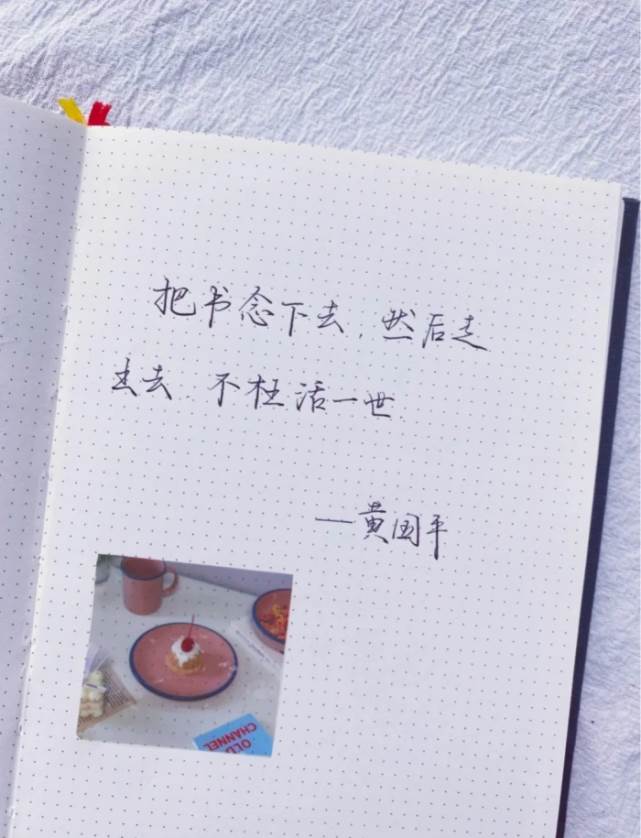 把书念下去,然后走
出去 不枉活一世
—黄国平
OLD
CHANNEL